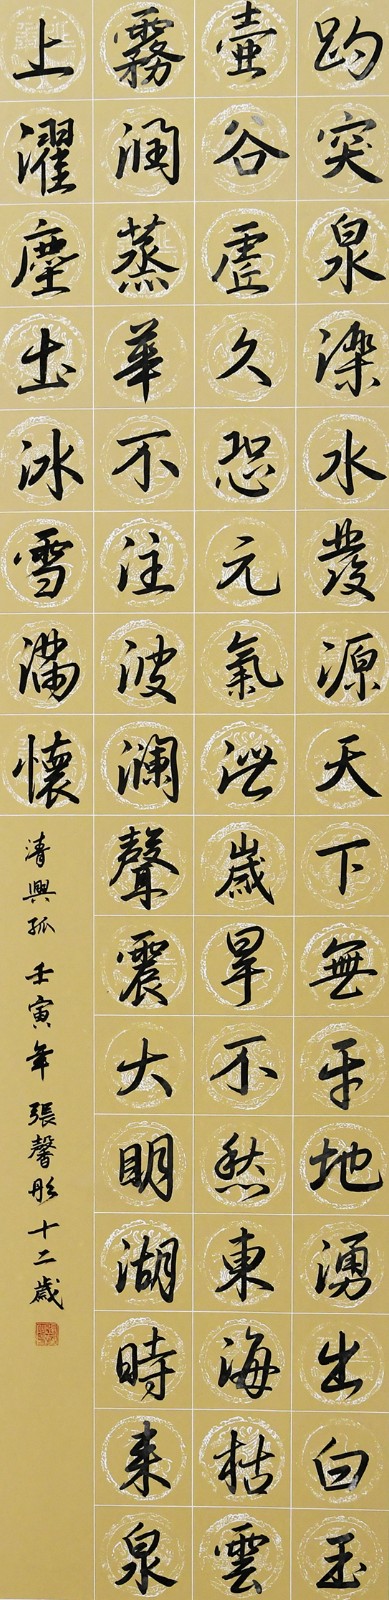 趵突泉濼水發源天下無平地湧出白玉
壺谷虛久恐元氣泄歲旱不愁東海枯雲
霧潤蒸華不注波瀾聲震大明湖時來泉
上濯塵土冰雪滿懷
清興孤 壬寅年 張馨彤十二歲